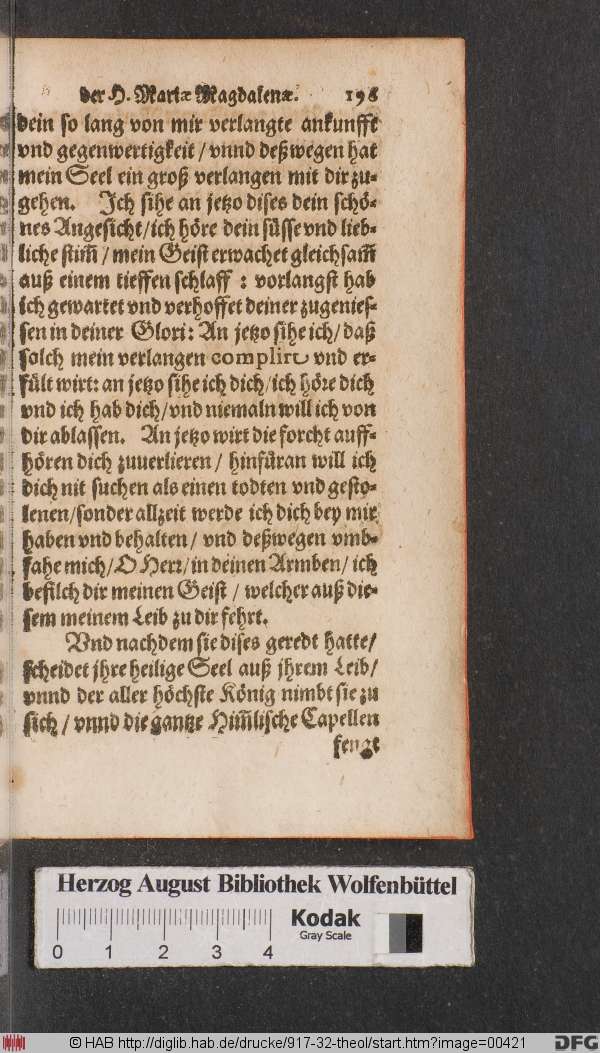 der H. Mariæ Magdalenæ. 198
dein so lang von mir verlangte ankunfft
vnd gegenwertigkeit / vnnd deßwegen hat
mein Seel ein groß verlangen mit dir zu-
gehen. Ich sihe an jetzo dises dein schö-
nes Angesicht/ich höre dein süsse vnd lieb-
liche stim̃ / mein Geist erwachet gleichsam̃
auß einem tieffen schlaff : vorlangst hab
ich gewartet vnd verhoffet deiner zugenies-
sen in deiner Glori: An jetzo sihe ich/ daß
solch mein verlangen complirt vnd er-
fült wirt: an jetzo sihe ich dich/ich höre dich
vnd ich hab dich/vnd niemaln will ich von
dir ablassen. An jetzo wirt die forcht auff-
hören dich zuuerlieren / hinfüran will ich
dich nit suchen als einen todten vnd gesto-
lenen/sonder allzeit werde ich dich bey mir
haben vnd behalten / vnd deßwegen vmb-
fahe mich/O Herr/in deinen Armben/ ich
befilch dir meinen Geist / welcher auß die-
sem meinem Leib zu dir fehrt.
Vnd nachdem sie dises geredt hatte/
scheidet jhre heilige Seel auß jhrem Leib/
vnnd der aller höchste König nimbt sie zu
sich / vnnd die gantze Him̃lische Capellen
fengt
Herzog August Bibliothek Wolfenbüttel
Kodak
Gray Scale
0 1 2 3 4
© HAB http://diglib.hab.de/drucke/917-32-theol/start.htm?image=00421
DFG